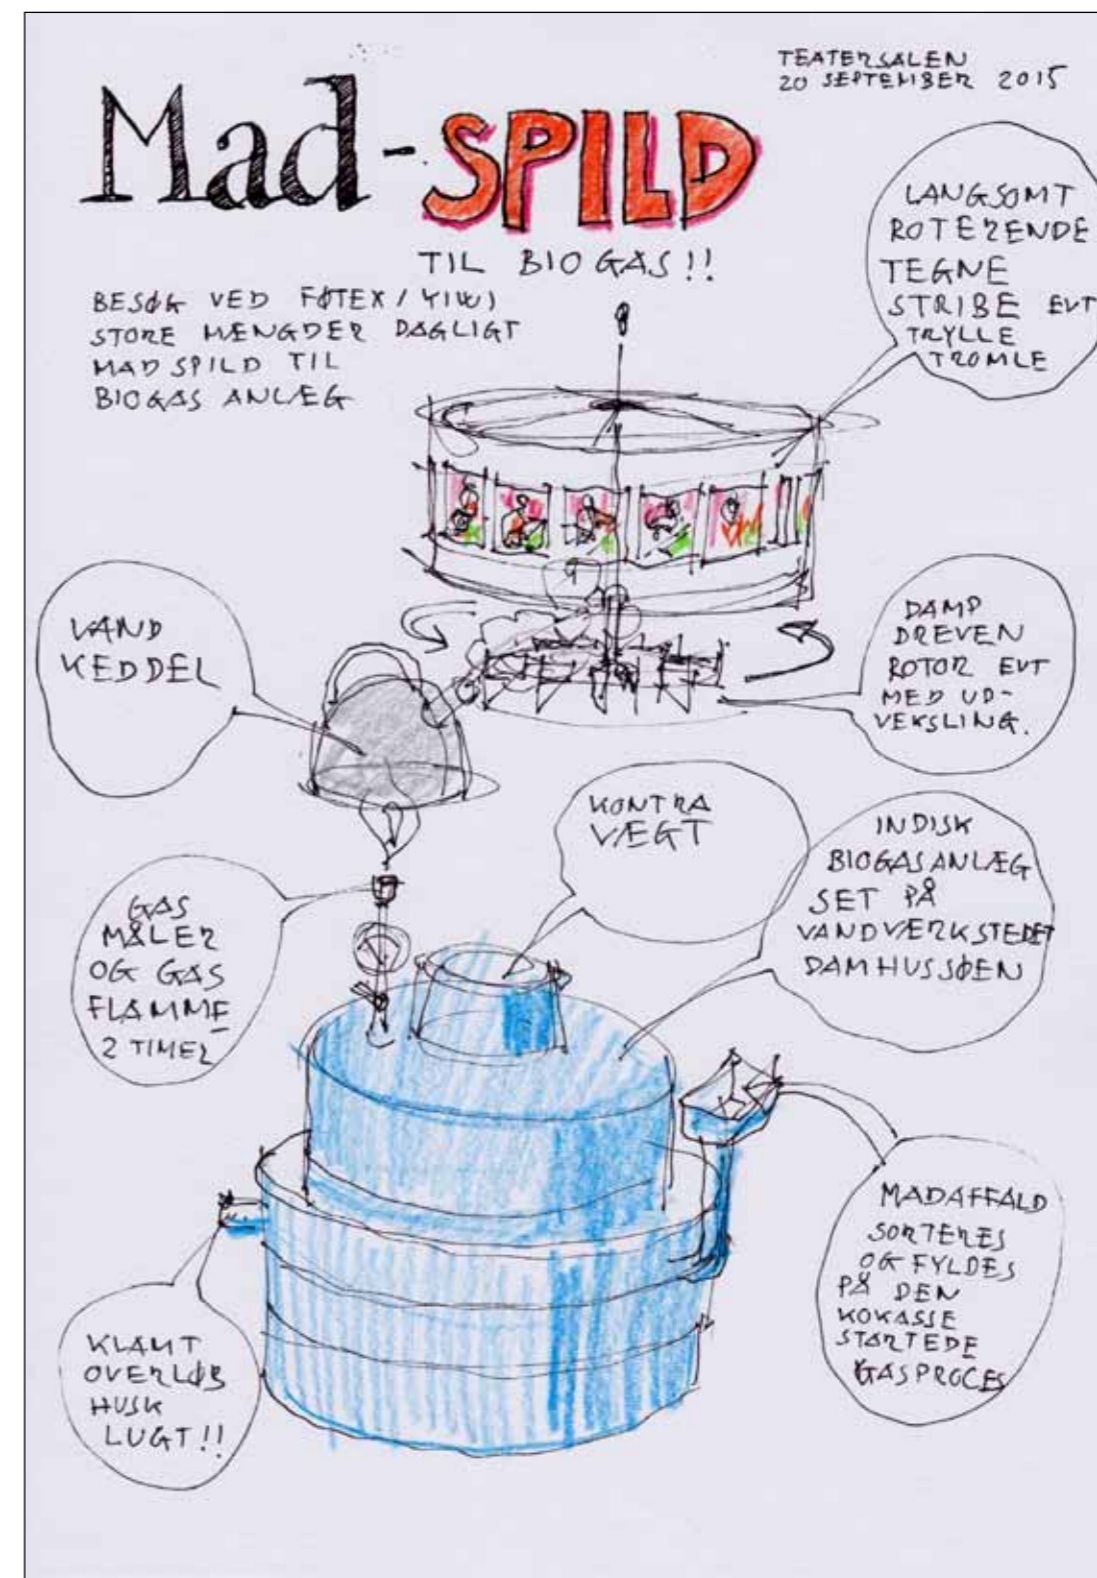 TEATERSALEN
20 SEPTEMBER 2015
Mad-SPILD
TIL BIOGAS!!
BESØG VED FØTEX/
STORE MÆNGDER DAGLIGT
MADSPILD TIL
BIOGAS ANLÆG
LANGSOMT
ROTERENDE
TEGNE
STRIBE EVT
TRYLLE
TROMLE
VAND
KEDDEL
DAMP
DREVEN
ROTOR EVT
MED UD-
VEKSLING.
KONTRA
VÆGT
INDISK
BIOGASANLÆG
SET PÅ
VANDVÆRKSTEDET
DAMHUSSØEN
GAS
MÅLER
OG GAS
FLAMME
2 TIMER
MADAFFALD
SORTERES
OG FYLDES
PÅ DEN
KOKASSE
STARTEDE
GASPROCES
KLAMT
OVERLØB
HUSK
LUGT!!